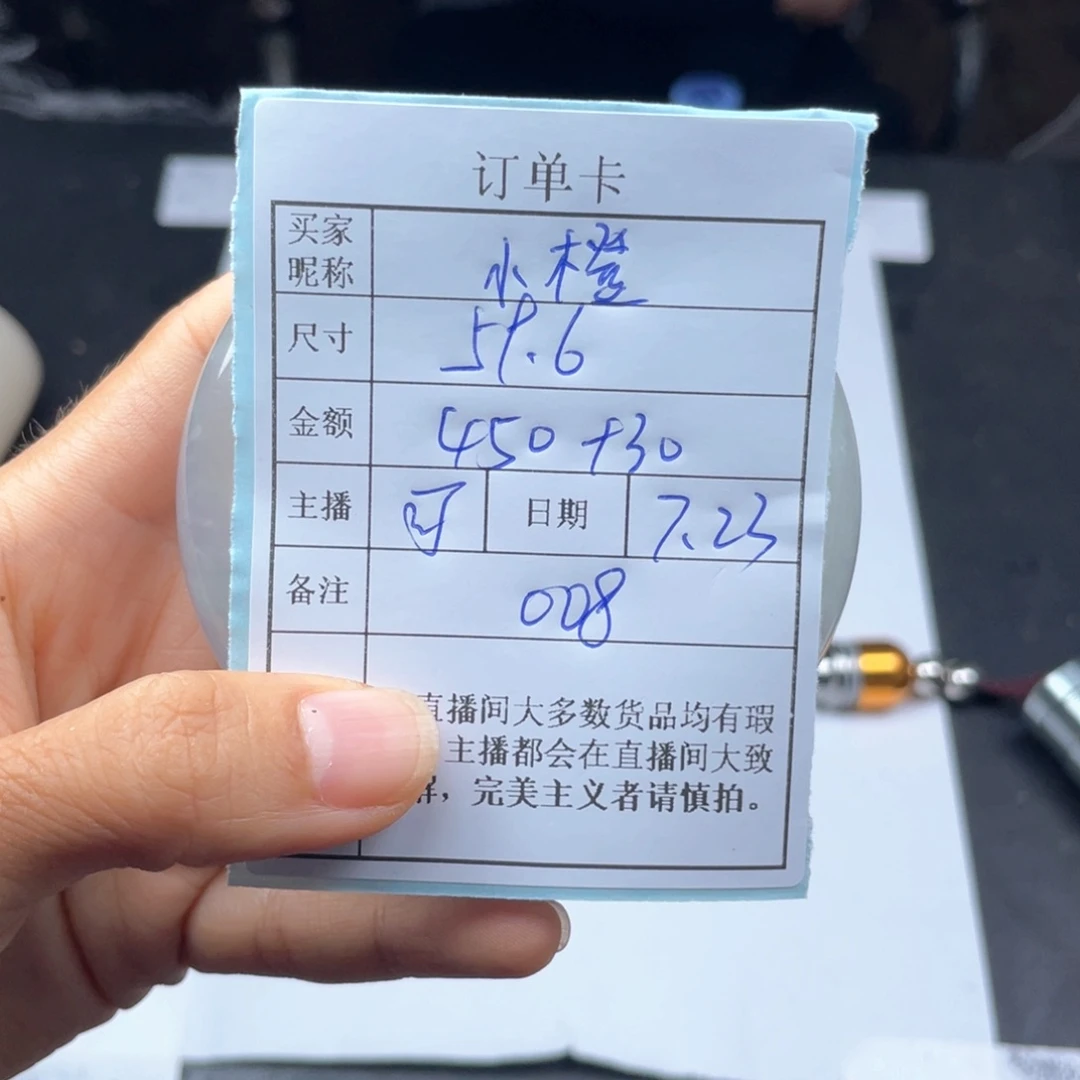 订单卡
买家昵称 小橙
尺寸 59.6
金额 450+30
主播 可 日期 7.23
备注 008
直播间大多数货品均有瑕
主播都会在直播间大致
完美主义者请慎拍。